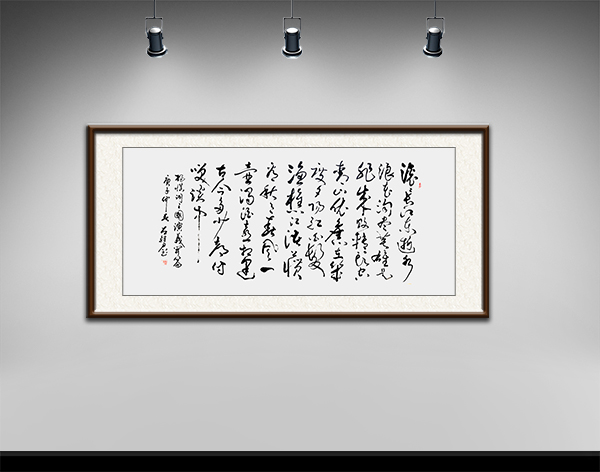 滚滚长江东逝水
浪花淘尽英雄是
非成败转头空
青山依旧在几
度夕阳红白发
渔樵江渚上惯
看秋月春风一
壶浊酒喜相逢
古今多少事都付
笑谈中
杨慎词三国演义开篇
庚子仲夏